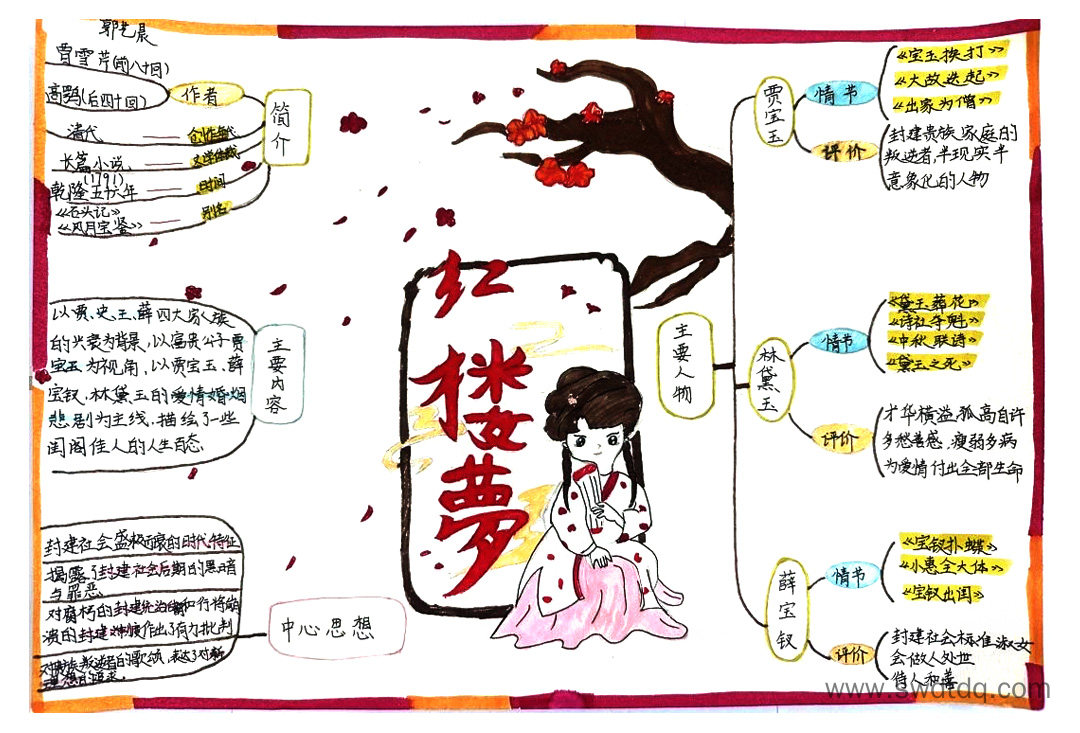 曹雪芹(前八十回)
高鹗(后四十回)
作者
简介
清代
创作年代
长篇小说
文学体裁
(1791)
乾隆五十六年
时间
《石头记》
《风月宝鉴》
别名
以贾、史、王、薛四大家族
的兴衰为背景,以富贵公子贾
宝玉为视角,以贾宝玉、薛
宝钗、林黛玉的爱情婚姻
悲剧为主线,描绘了一些
闺阁佳人的人生百态.
主要内容
封建社会盛极而衰的时代特征
揭露了封建社会后期的黑暗
与罪恶
对腐朽的封建统治者和行将崩
溃的封建制度作出了有力批判
中心思想
红楼夢
主要人物
贾宝玉
情节
《宝玉挨打》
《大故迭起》
《出家为僧》
评价
封建贵族家庭的
叛逆者,半现实半
意象化的人物
林黛玉
情节
《黛玉葬花》
《诗社夺魁》
《中秋联诗》
《黛玉之死》
评价
才华横溢,孤高自许
多愁善感,瘦弱多病
为爱情付出全部生命
薛宝钗
情节
《宝钗扑蝶》
《小惠全大体》
《宝钗出闺》
评价
封建社会标准淑女
会做人处世
待人和善
www.swdtdq.com